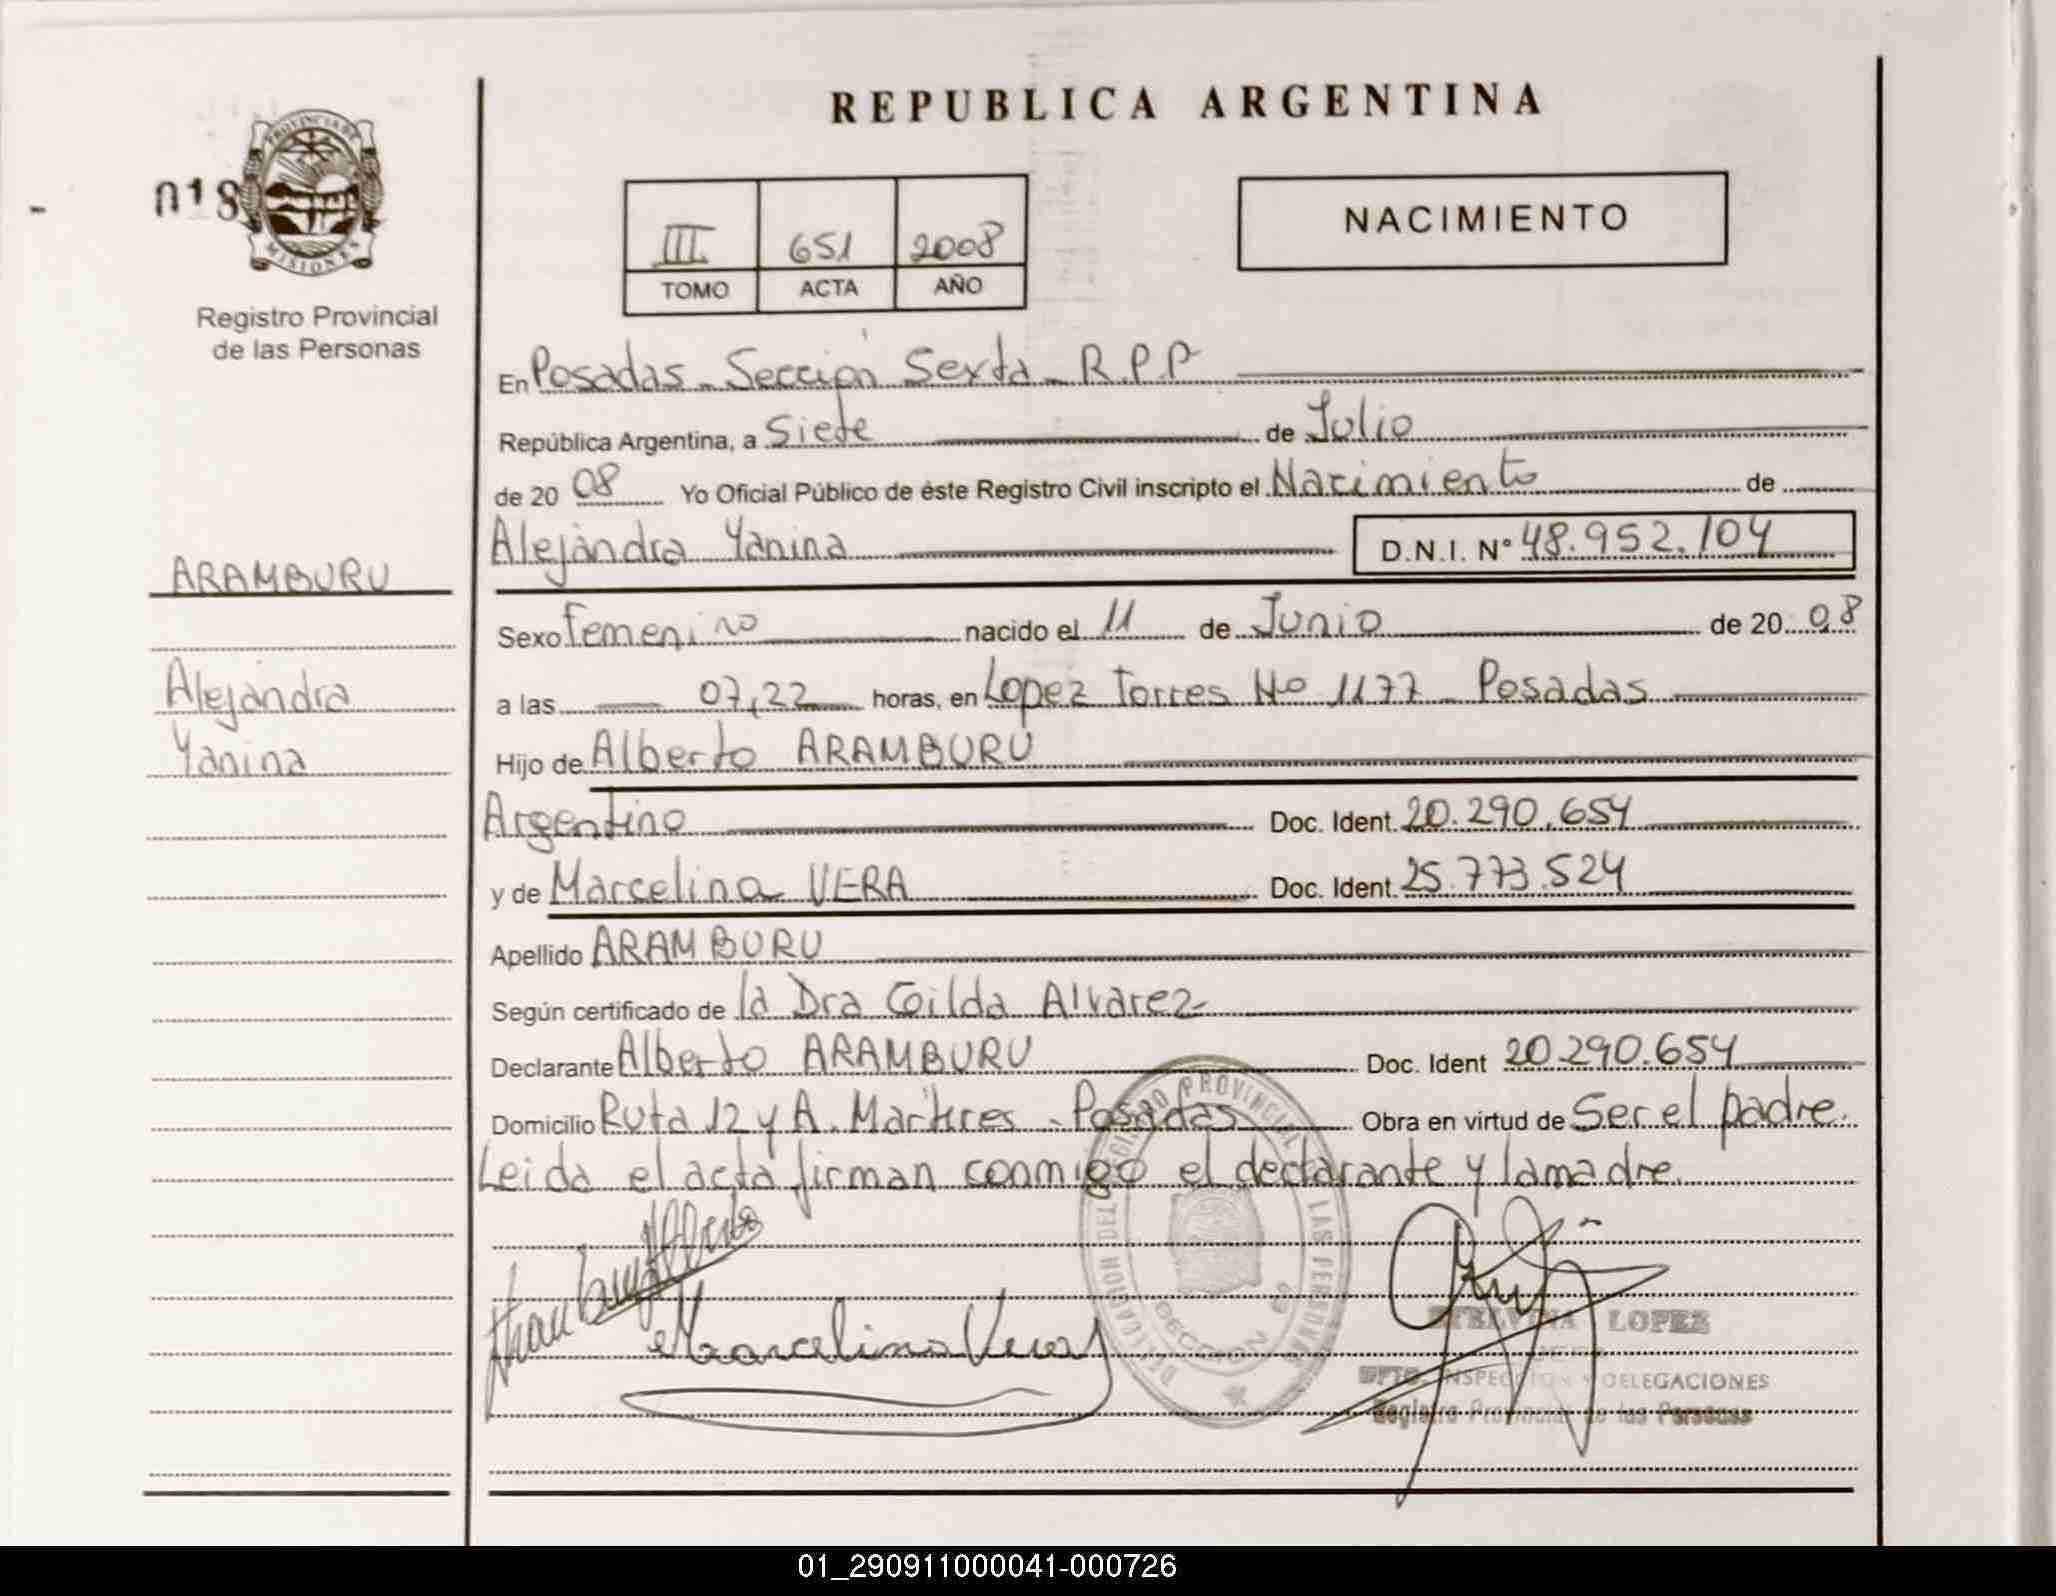 REPUBLICA ARGENTINA
018
PROVINCIA DE
MISIONES
Registro Provincial
de las Personas
III 651 2008
TOMO ACTA AÑO
NACIMIENTO
En Posadas - Sección Sexta - R.P.P
República Argentina, a Siete de Julio
de 20 08 Yo Oficial Público de éste Registro Civil inscripto el Nacimiento de
Alejandra Yanina D.N.I. Nº 48.952.104
ARAMBURU
Alejandra
Yanina
Sexo femenino nacido el 11 de Junio de 20 08
a las 07,22 horas, en Lopez Torres No 1177 - Posadas
Hijo de Alberto ARAMBURU
Argentino Doc. Ident. 20.290.654
y de Marcelina VERA Doc. Ident. 25.773.524
Apellido ARAMBURU
Según certificado de la Dra Gilda Alvarez
Declarante Alberto ARAMBURU Doc. Ident 20.290.654
Domicilio Ruta 12 y A. - Posadas Obra en virtud de Ser el padre.
Leida el acta firman conmigo el declarante y la madre.
Marcelina Vera
DELEGACION DEL REGISTRO PROVINCIAL DE LAS PERSONAS
SECCION 6ª
LOPEZ
DPTO. INSPECCION Y DELEGACIONES
Registro Provincial de las Personas
01_290911000041-000726